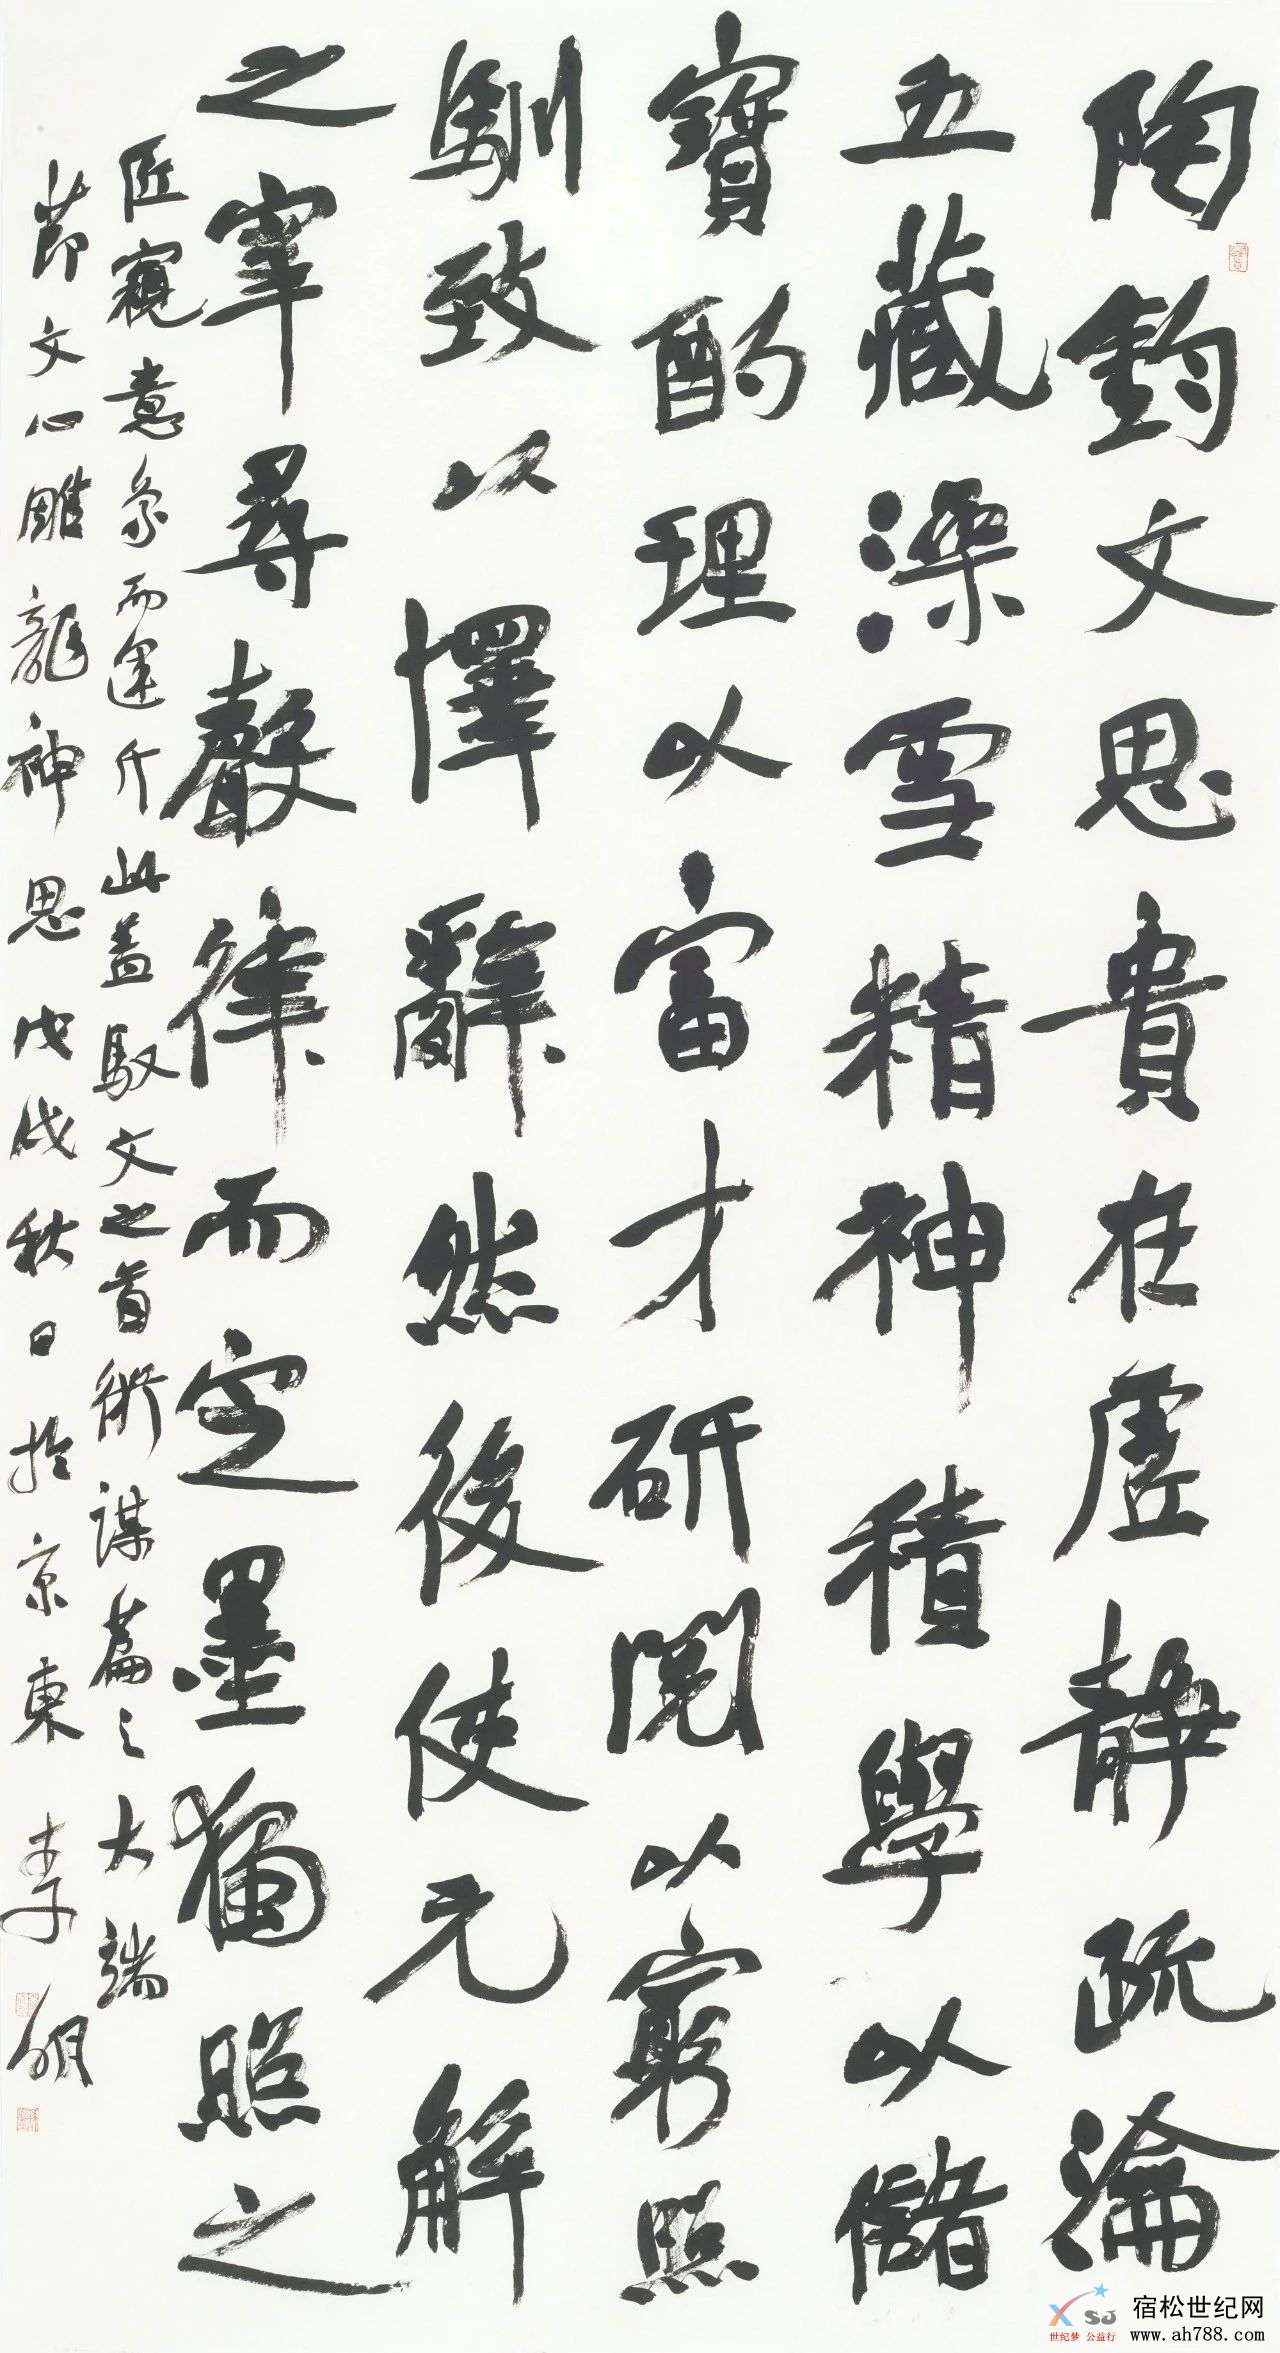 陶鈞文思貴在虛静疏瀹
五藏澡雪精神積學以儲
寶酌理以富才研閱以窮照
馴致以懌辭然後使元解
之宰尋聲律而定墨獨照之
匠窺意象而運斤此盖馭文之首術謀篇之大端
節文心雕龍神思戊戌秋日於京東李明
宿松世纪网
XSJ
世纪梦 公益行
www.ah788.com